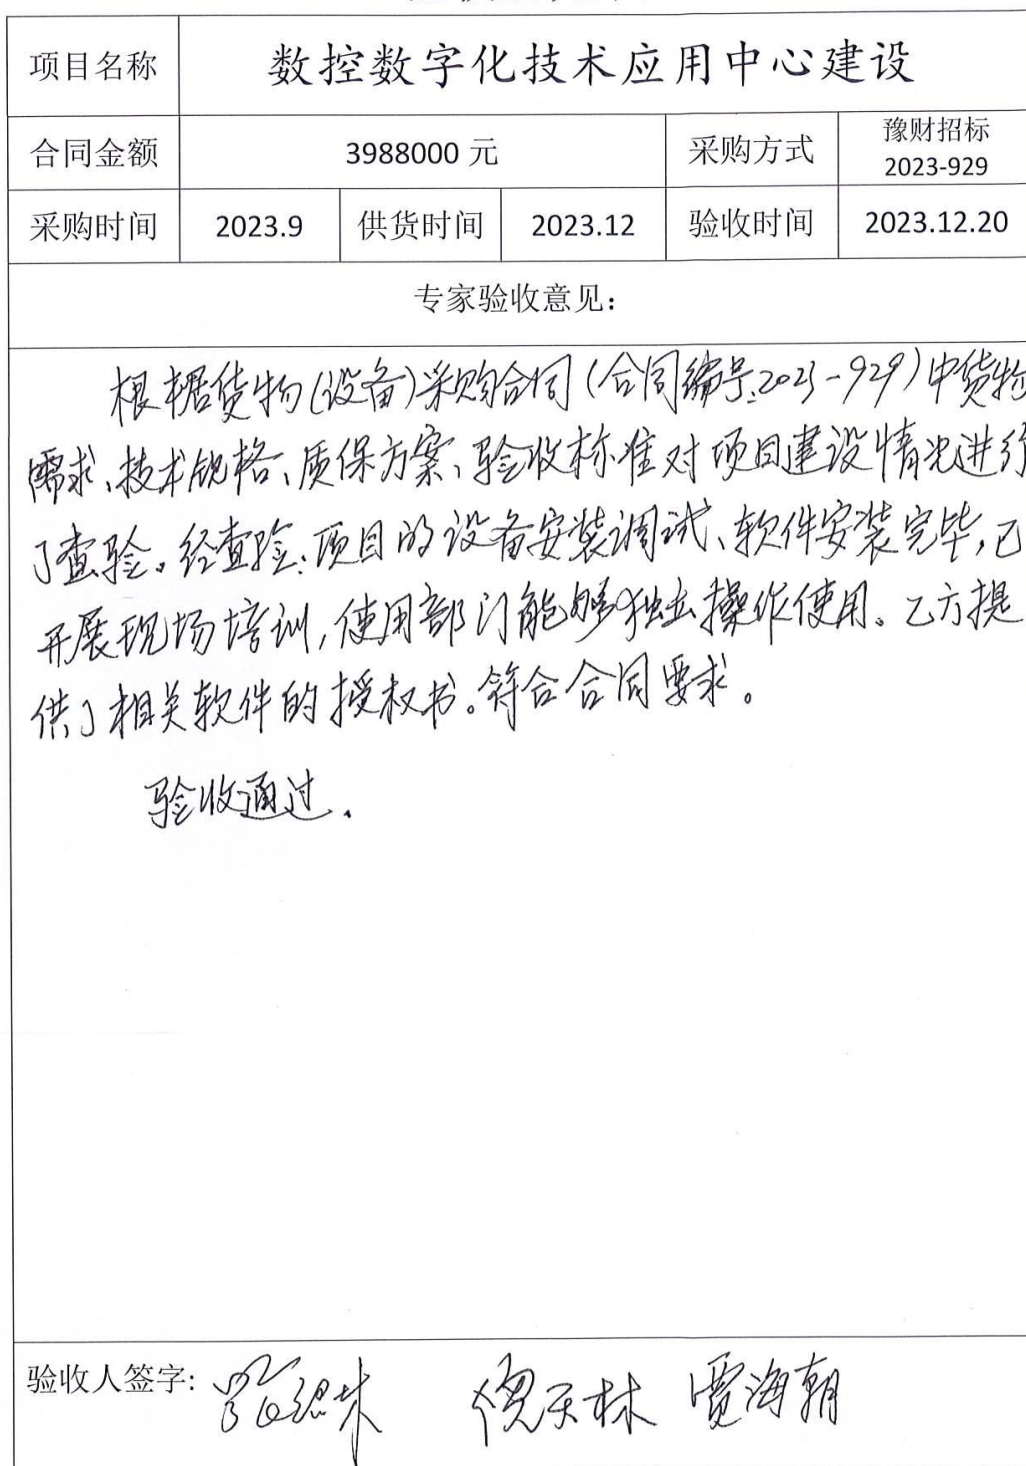 项目名称 数控数字化技术应用中心建设
合同金额 3988000 元 采购方式 豫财招标
2023-929
采购时间 2023.9 供货时间 2023.12 验收时间 2023.12.20
专家验收意见:
根据货物(设备)采购合同(合同编号:2023-929)中货物
需求、技术规格、质保方案、验收标准对项目建设情况进行
了查验。经查验:项目的设备安装调试、软件安装完毕,已
开展现场培训,使用部门能够独立操作使用。乙方提
供了相关软件的授权书。符合合同要求。
验收通过.
验收人签字: 海朝